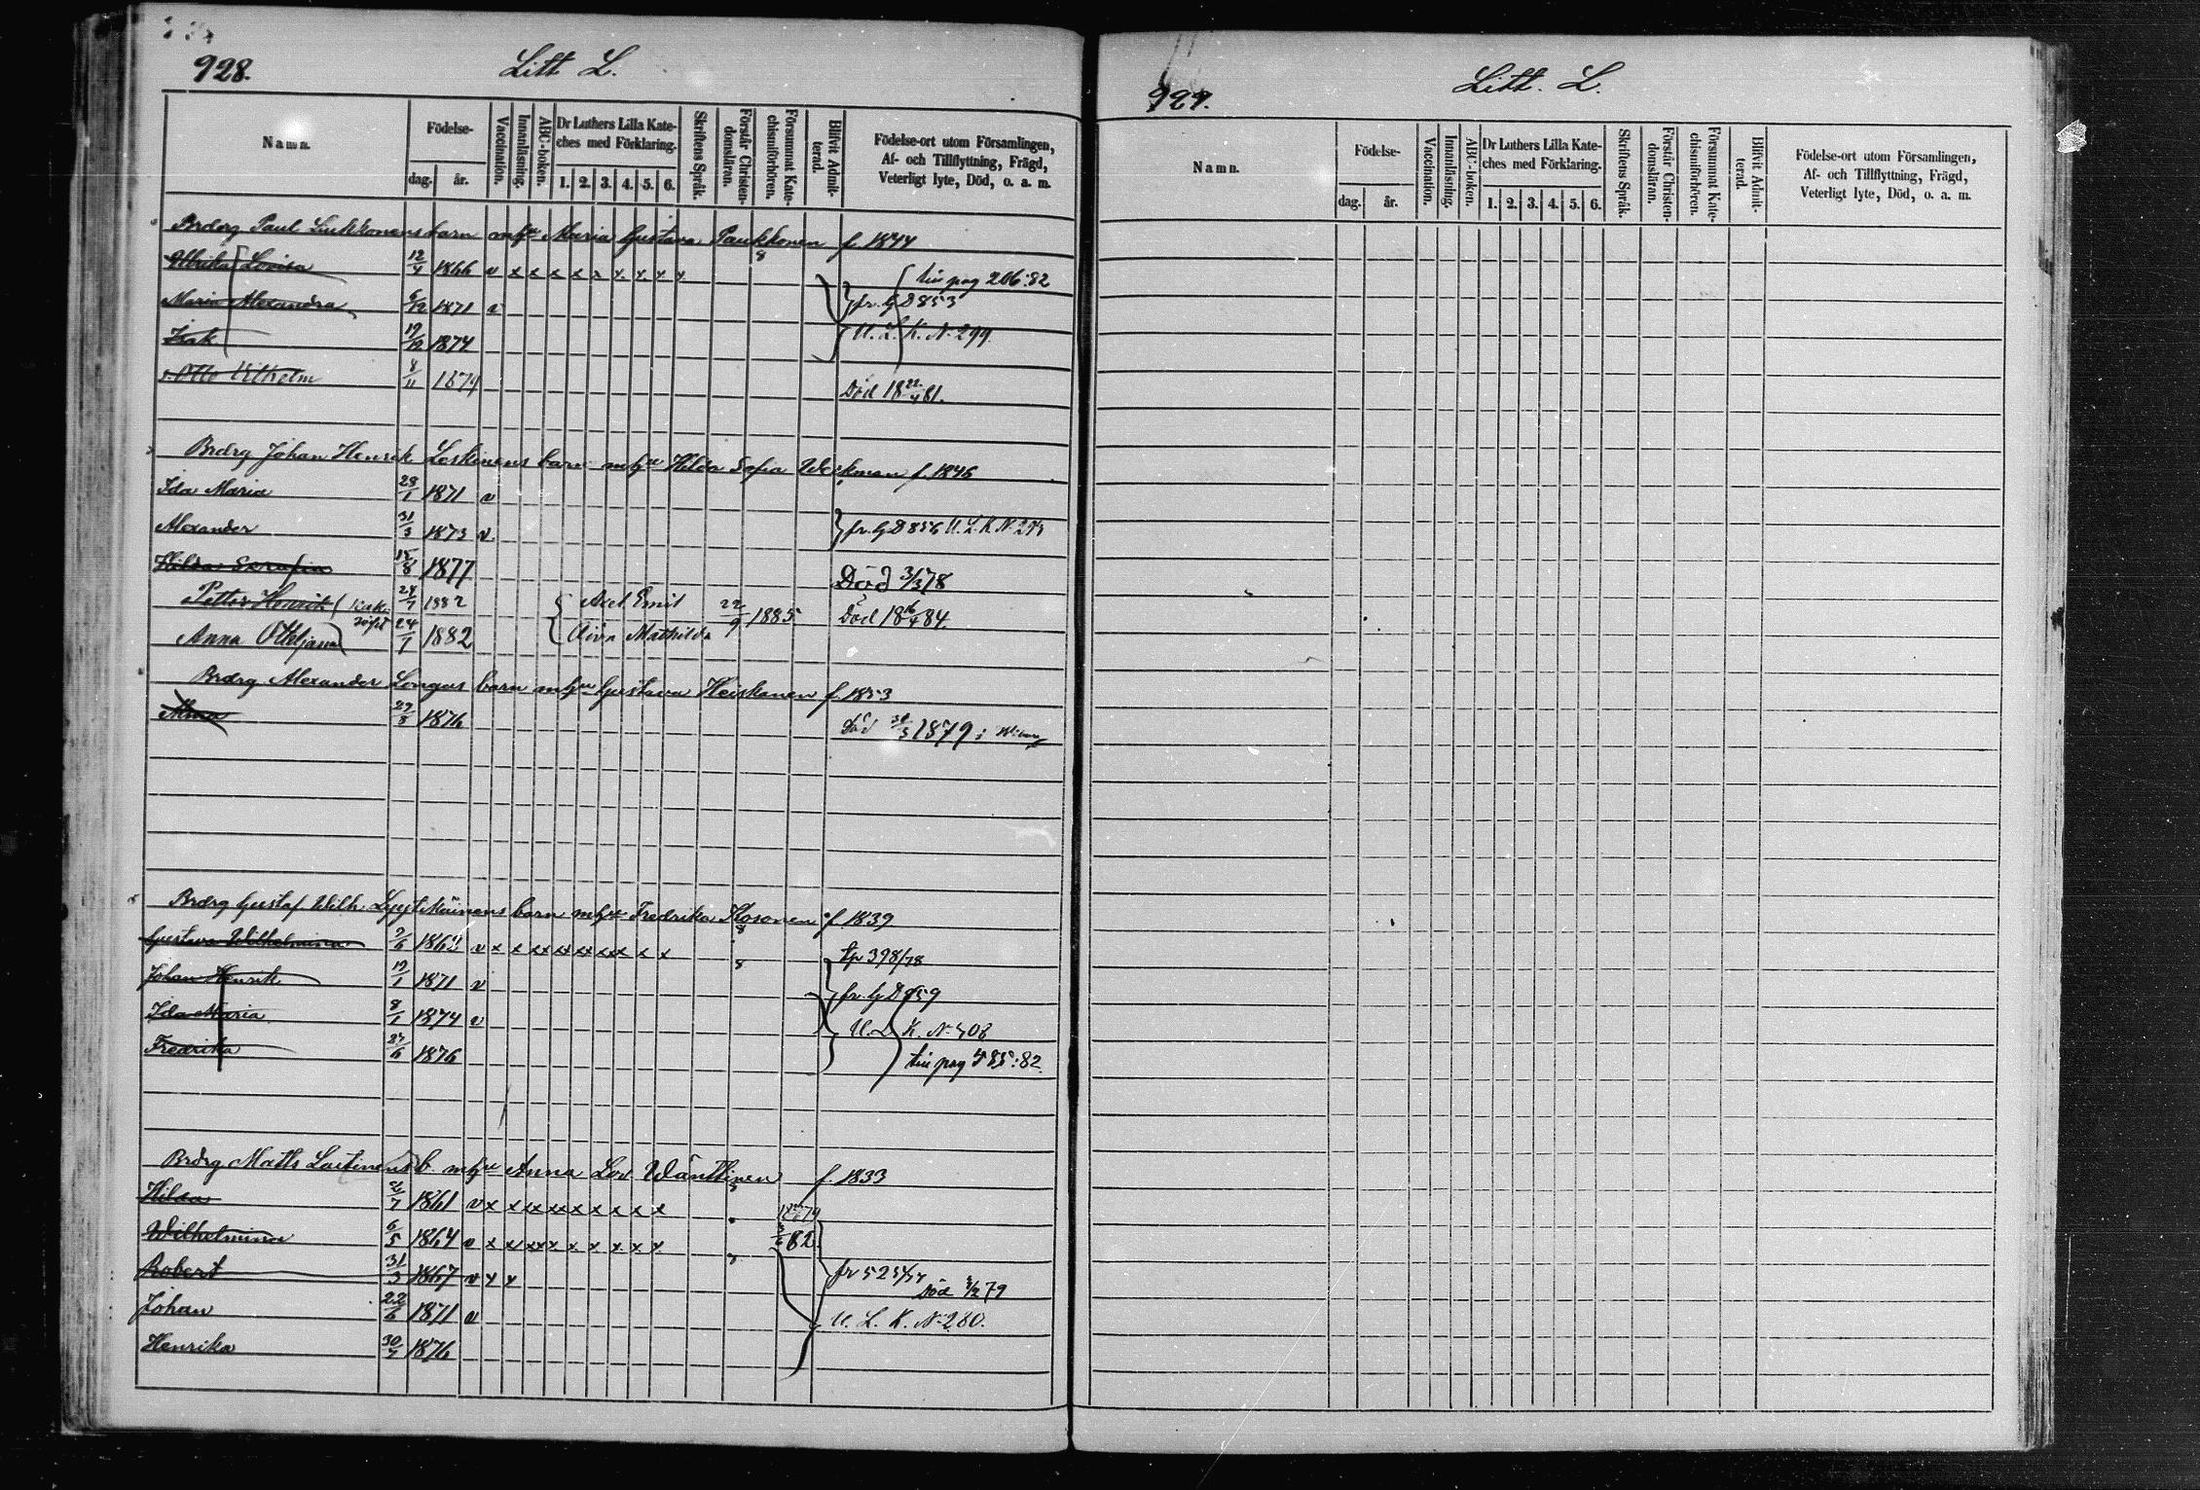 928.
Litt L.
Namn.
Födelse-
dag.
år.
Vaccination.
Innanläsning.
ABC-boken.
Dr Luthers Lilla Kate-
ches med Förklaring.
1. 2. 3. 4. 5. 6.
Skriftens Språk.
Förstår Christen-
domsläran.
Försummat Kate-
chismiförhören.
Blifvit Admit-
terad.
Födelse-ort utom Församlingen,
Af- och Tillflyttning, Frägd,
Veterligt lyte, Död, o. a. m.
Brdrg Paul Luukkonens barn mhu Maria Gustava Paukkonen f. 1844
Ulrika Lovisa 12/4 1866 v x x x x x x x x x
pag 206:82
Maria Alexandra 6/12 1871 v fr. G D 853
Isak 19/12 1874 U. L. K. N. 299
Otto Vilhelm 8/11 1879 Död 18 22/4 81.
Brdrg Johan Henrik Loskinens barn mhu Hilda Sofia Weckman f. 1846
Ida Maria 28/1 1871 v
Alexander 31/3 1873 v fr. G D 856 U. L. K. N.
Hilda Serafin 15/8 1877 Död 3/3 78
Petter Henrik 24/7 1882 Axel Emil 22/9 1885 Död 18 16/4 84.
Anna 24/7 1882 Mathilda
Brdrg Alexander Longas barn mhu Gustava Heiskanen f. 1853
Alma 27/8 1876 Död 30/3 1879 i
Brdrg Gustaf Wilh. Lyytikäinens barn mhu Fredrika Kosonen f. 1839
Gustava Wilhelmina 2/6 1862 v x x x x x x x x x tp 398/78
Johan Henrik 19/1 1871 v fr. G D 859
Ida Maria 8/1 1874 v U. L. K. N. 408
Fredrika 27/6 1876 pag 485:82.
Brdrg Matts Laitinens b. mhu Anna Lov. Wänttinen f. 1833
Hilda 1861 v x x x x x x x x x
Wilhelmina 6/5 1864 v x x x x x x x x x 82
Robert 31/3 1867 v x x fr 525/77 Död 79
Johan 22/6 1871 v U. L. K. N. 280.
Henrika 30/7 1876
929.
Litt. L.
Namn.
Födelse-
dag.
år.
Vaccination.
Innanläsning.
ABC-boken.
Dr Luthers Lilla Kate-
ches med Förklaring.
1. 2. 3. 4. 5. 6.
Skriftens Språk.
Förstår Christen-
domsläran.
Försummat Kate-
chismiförhören.
Blifvit Admit-
terad.
Födelse-ort utom Församlingen,
Af- och Tillflyttning, Frägd,
Veterligt lyte, Död, o. a. m.